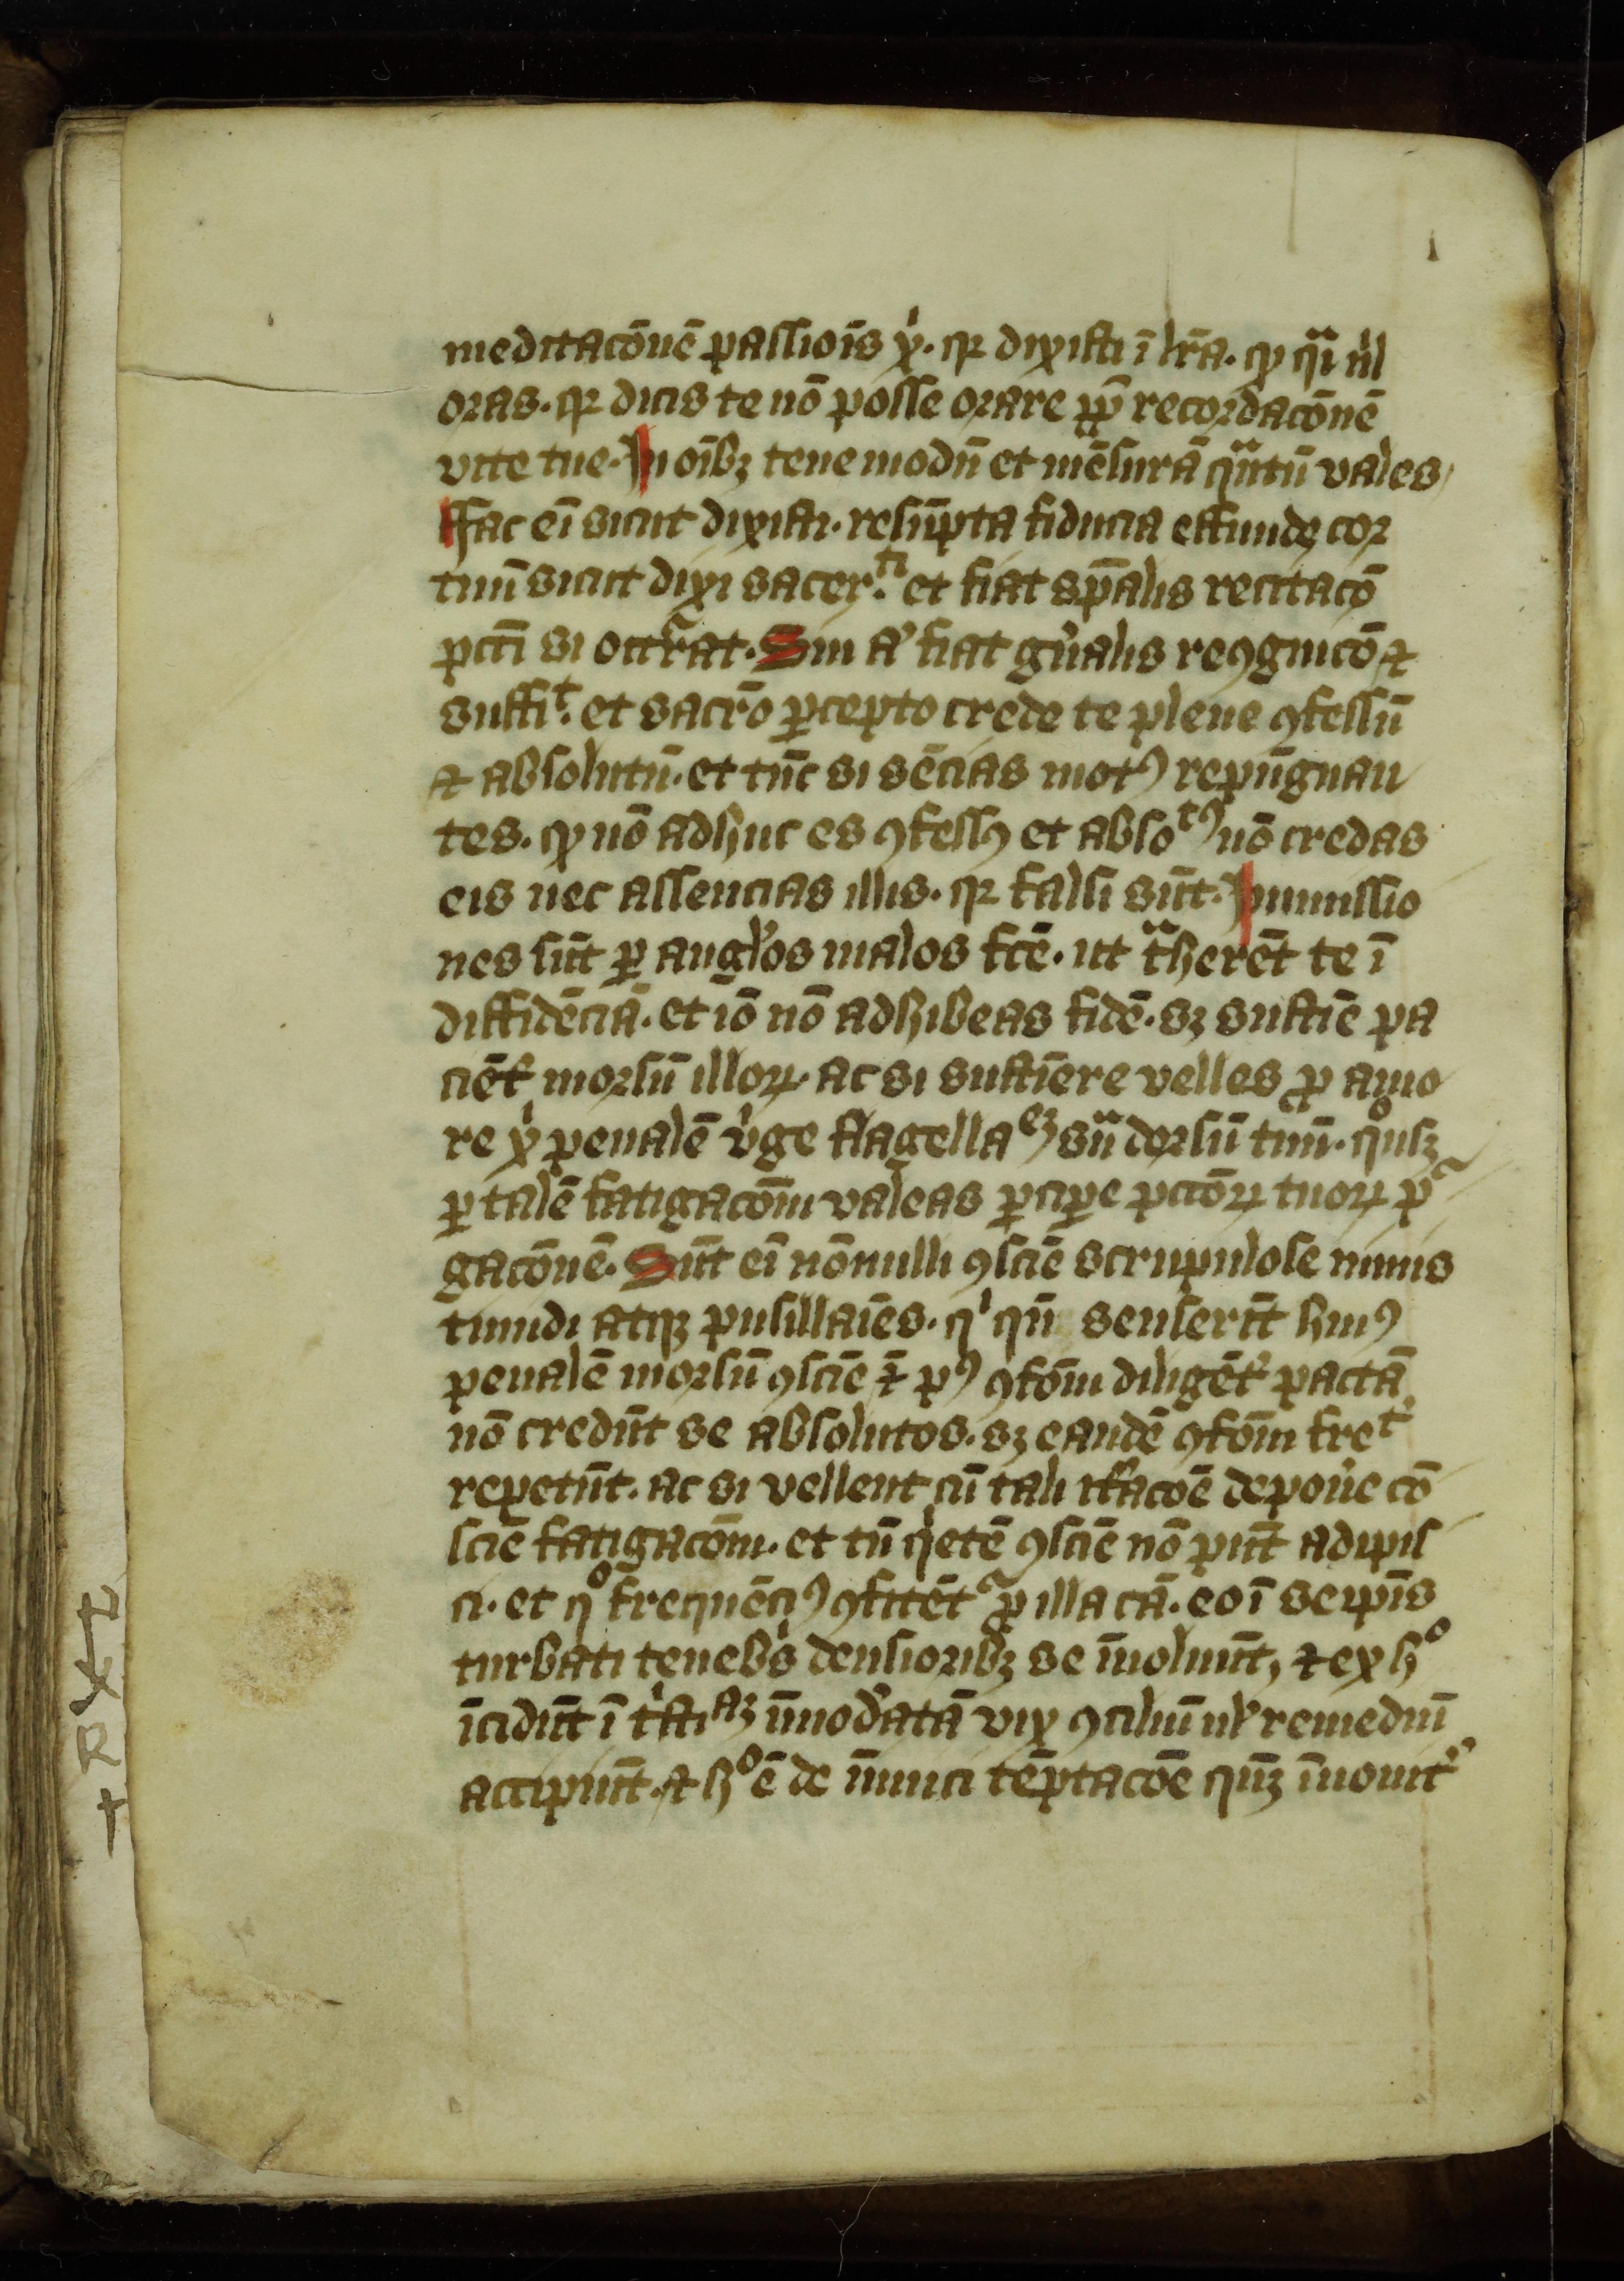 meditacōnē passiōis xⁱ. qꝛ dixisti ī lr̄a. ꝙ qͣi nⁱl
oras. qꝛ dicis te nō posse orare ꝓpt̄ recordacōnē
vite tue. In oībꝫ tene modū et mēsurā qͣntū vales
ffac eī sicut dixisti. resūpta fiducia effunde cor
tuū sicut dixi sacer.ᵗⁱ et fiat sp̄alis recitacō
pctī si occˀrat. Sin aˀ fiat gn̄alis reꝯgnicō ⁊
suffi.ᵗ et sacr̄o ꝑcepto crede te plene ꝯfessū
⁊ absolutū. et tūc si sēcias motꝰ repūgnan
tes. ꝙ nō adhuc es ꝯfessꝰ et absoᵗꝰ nō credas
eis nec assencias illis. qꝛ falsi sūt. Inmissio
nes sūt ꝑ angˡos malos fcē. ut tͣherēt te ī
diffidēciā. et iō nō adhibeas fidē. sꝫ sustiē pa
ciētˀ morsū illoꝝ. ac si sustīere velles ꝓ amo
re xⁱ penalē vⁱge flagellaᵉꝫ sūͣ dorsū tuū. qͦusꝫ
ꝑ talē fatigacōm valeas ꝑciꝑe pctōꝝ tuoꝝ pˀ
gacōnē. Sūt eī nōnulli ꝯsciē scrupulose nimis
timidi atqꝫ pusillaīes. qⁱ qn̄ senserīt huiꝰ
penalē morsū ꝯsciē ⁊̄ pꝰ ꝯfōm diligētˀ pactā
nō credūt se absolutos. sꝫ eandē ꝯfōm freᵗˀ
repetūt. ac si vellent cū tali itˀacōē deponˀe cō
sciē fatigacōm. et tn̄ qⁱetē ꝯsciē nō pn̄t adipis
ci. et qͦ frequēciꝰ ꝯfitētˀ ꝓ illa cā. eo ī seip̄is
turbati tenebⁱs densioribꝫ se īuoluūt, ⁊ ex hͦ
īcidūt ī tⁱstiᵃꝫ īmodˀatā vix ꝯciliū ulˀ remediū
accipiūt. ⁊ hͦ ē de īimici tēptacōē quā̄ īnouitˀ
+ R X I